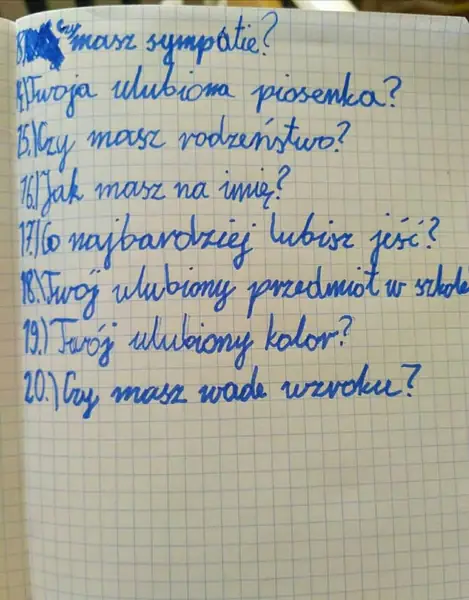 Czy masz sympatie?
Twoja ulubiona piosenka?
15.) Czy masz rodzeństwo?
16.) Jak masz na imię?
17.) Co najbardziej lubisz jeść?
18.) Twój ulubiony przedmiot w szkole
19.) Twój ulubiony kolor?
20.) Czy masz wade wzroku?